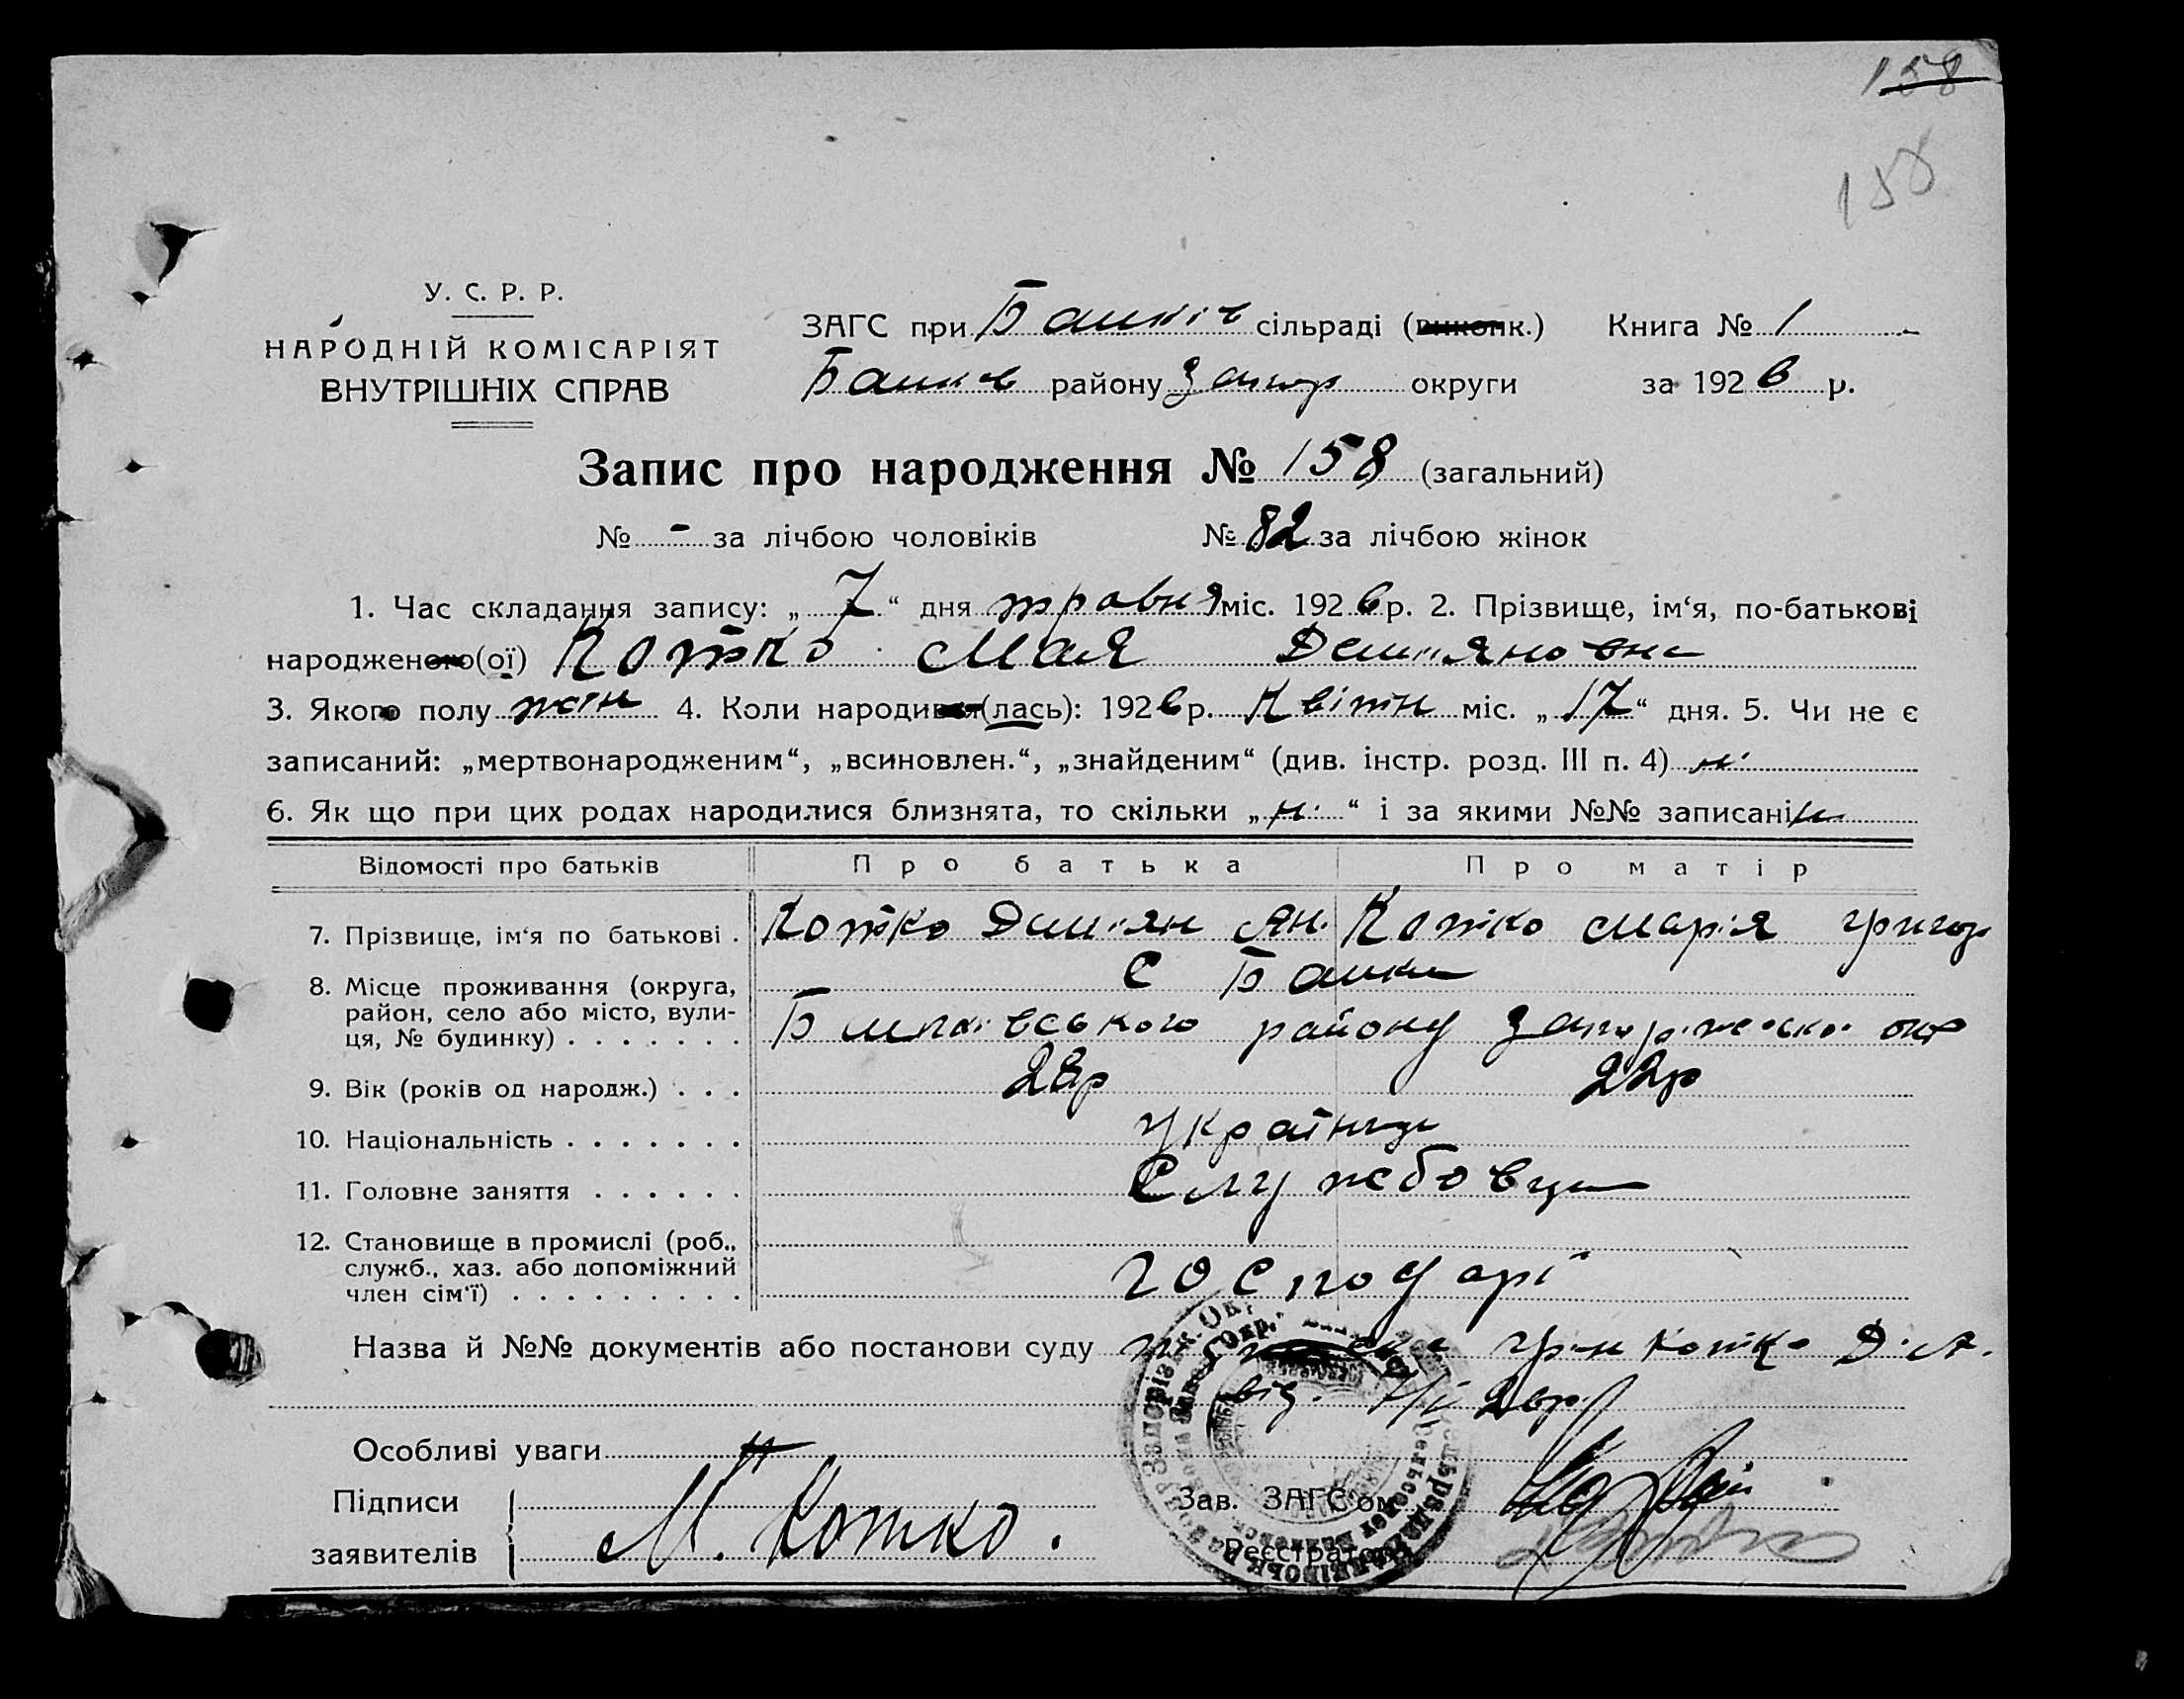 158
158
У. С. Р. Р.
НАРОДНІЙ КОМІСАРІЯТ
ВНУТРІШНІХ СПРАВ
ЗАГС при сільраді (виконк.) Книга № 1
району округи за 1926 р.
Запис про народження № 158 (загальний)
№ - за лічбою чоловіків № 82 за лічбою жінок
1. Час складання запису: „7“ дня травня міс. 1926 р. 2. Прізвище, ім‘я, по-батькові
народженого(ої) Котко Мая Демʼяновна
3. Якого полу жін 4. Коли народився(лась): 1926 р. Квітн міс. „17“ дня. 5. Чи не є
записаний: „мертвонародженим“, „всиновлен.“, „знайденим“ (див. інстр. розд. III п. 4) ні
6. Як що при цих родах народилися близнята, то скільки „ні“ і за якими №№ записані ні
Відомості про батьків Про батька Про матір
7. Прізвище, ім‘я по батькові . Котко Демʼян Ан. Котко Марія Григор
8. Місце проживання (округа, с
район, село або місто, вули-
ця, № будинку) . . . . . . . району
9. Вік (років од народж.) . . . 28р 22р
10. Національність . . . . . . . Українці
11. Головне заняття . . . . . . Службовці
12. Становище в промислі (роб.,
служб., хаз. або допоміжний
член сім‘ї) . . . . . . . . . господарі
Назва й №№ документів або постанови суду гр-н Котко Д. А.
від
Особливі уваги
Підписи
заявителів М. Котко.
Зав. ЗАГС‘ом
Реєстратор